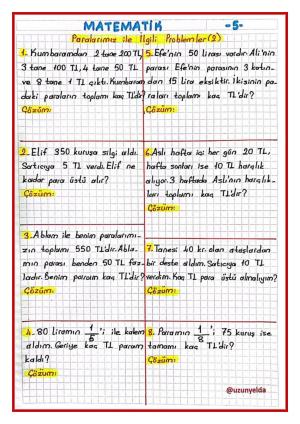 MATEMATİK -5-
Paralarımız ile İlgili Problemler (2)
1. Kumbaramdan 2 tane 200 TL,
3 tane 100 TL, 4 tane 50 TL
ve 8 tane 1 TL çıktı. Kumbaram
daki paraların toplamı kaç TL'dir?
Çözüm:
2. Elif 350 kuruşa silgi aldı.
Satıcıya 5 TL verdi. Elif ne
kadar para üstü alır?
Çözüm:
3. Ablam ile benim paralarımı-
zın toplamı 550 TL'dir. Abla-
mın parası benden 50 TL faz-
ladır. Benim param kaç TL'dir?
Çözüm:
4. 80 liramın 1/5'i ile kalem
aldım. Geriye kaç TL param
kaldı?
Çözüm:
5. Efe'nin 50 lirası vardır. Ali'nin
parası Efe'nin parasının 3 katın-
dan 15 lira eksiktir. İkisinin pa-
raları toplamı kaç TL'dir?
Çözüm:
6. Aslı hafta içi her gün 20 TL,
hafta sonları ise 10 TL harçlık
alıyor. 3 haftada Aslı'nın harçlık-
ları toplamı kaç TL'dir?
Çözüm:
7. Tanesi 40 kr. olan ataşlardan
bir deste aldım. Satıcıya 10 TL
verdim. Kaç TL para üstü almalıyım?
Çözüm:
8. Paramın 1/8'i; 75 kuruş ise
tamamı kaç TL'dir?
Çözüm:
@uzunyelda